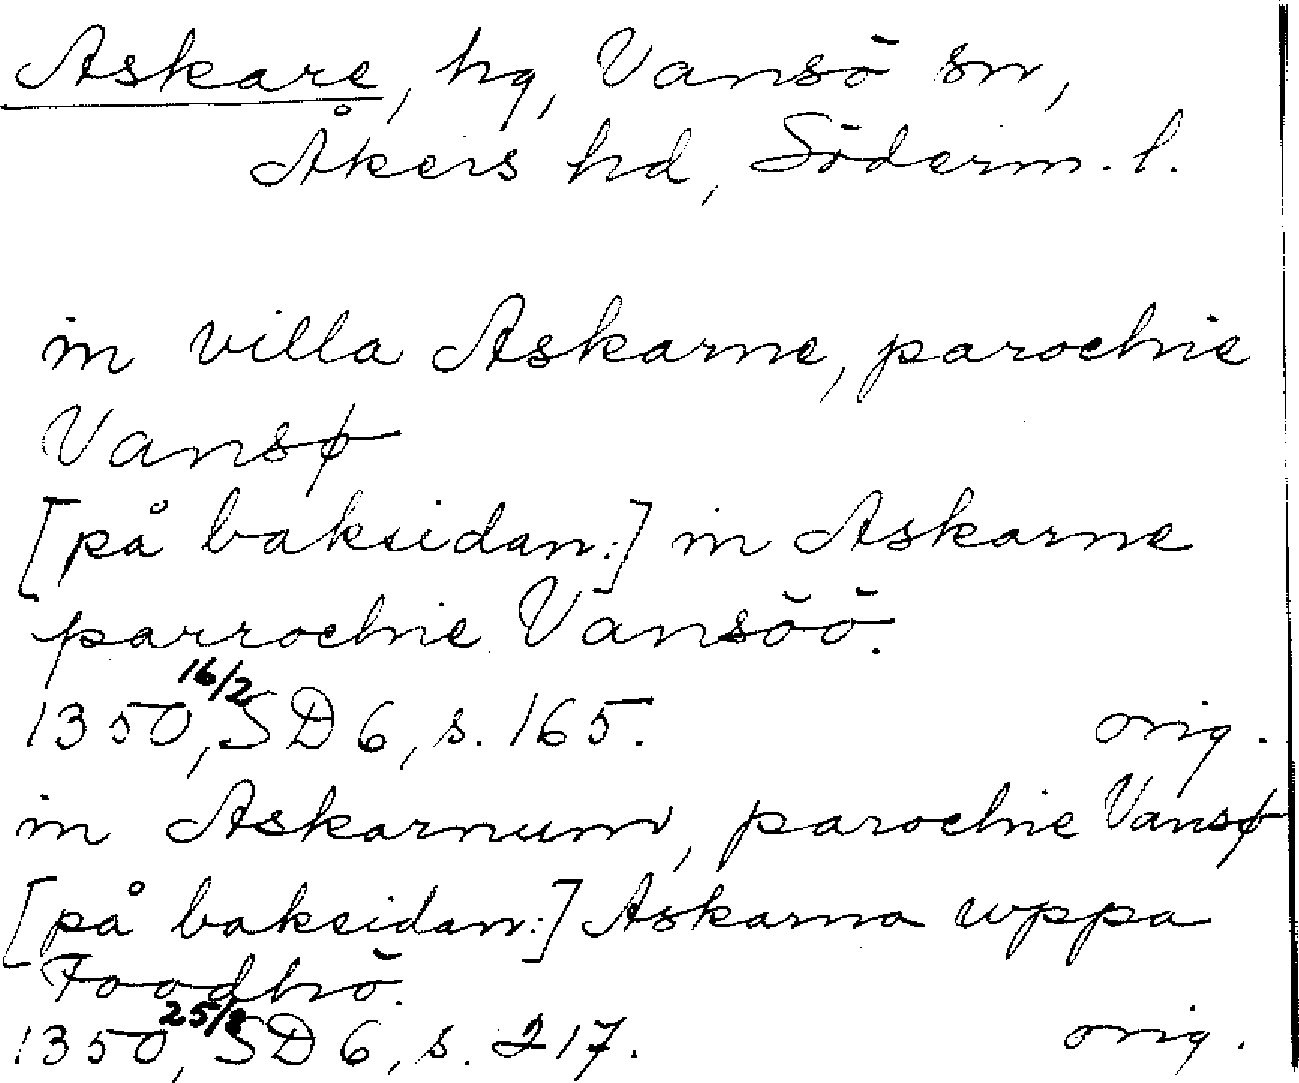 Askare, hg, Vansö sn,
Åkers hd, Söderm. l.
in villa Askarne, parochie
Vansø
[på baksidan:] in Askarne
parrochie Vansöö.
1350 16/2, SD 6, s. 165. orig.
in Askarnum, parochie Vansø
[på baksidan:] Askarna uppa
Foodhö.
1350 25/8, SD 6, s. 217. orig.